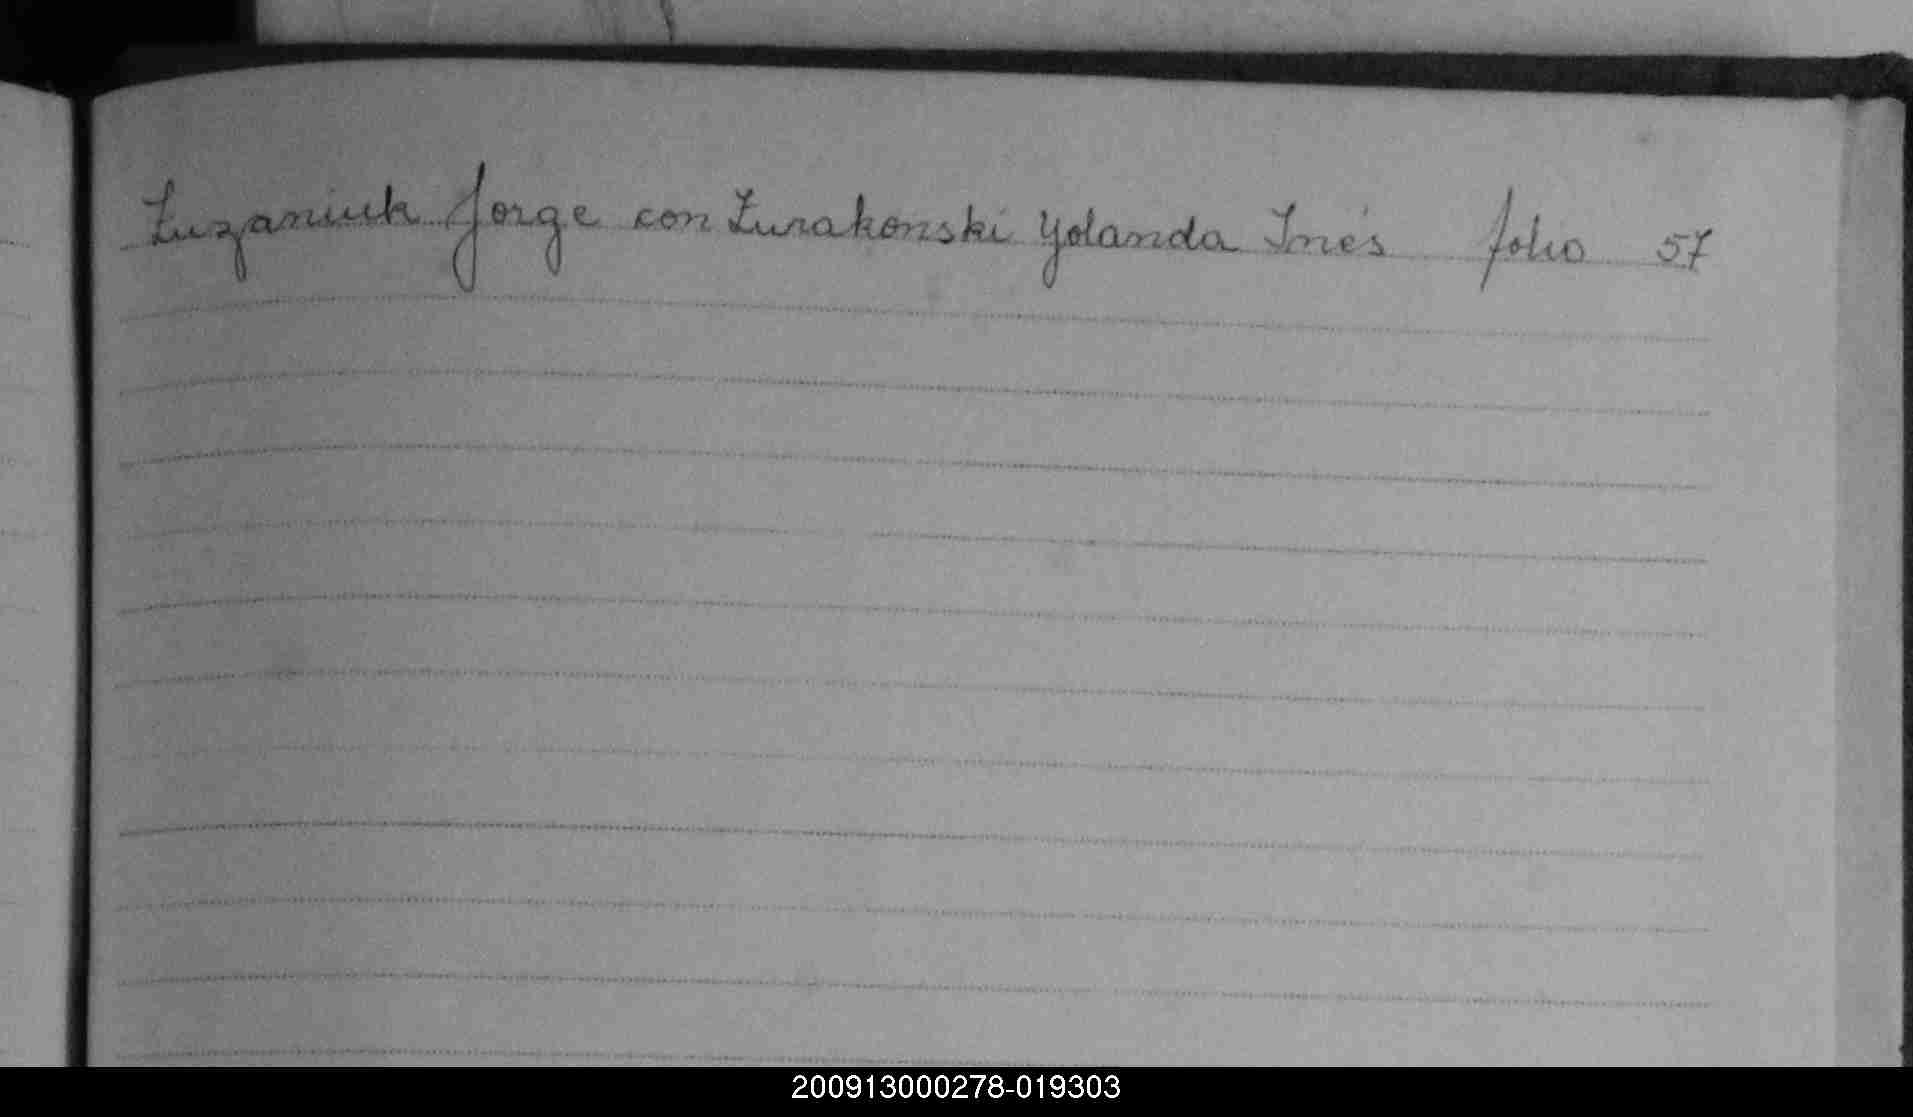 Zuzaniuk Jorge con Zurakonski Yolanda Inés folio 57
200913000278-019303